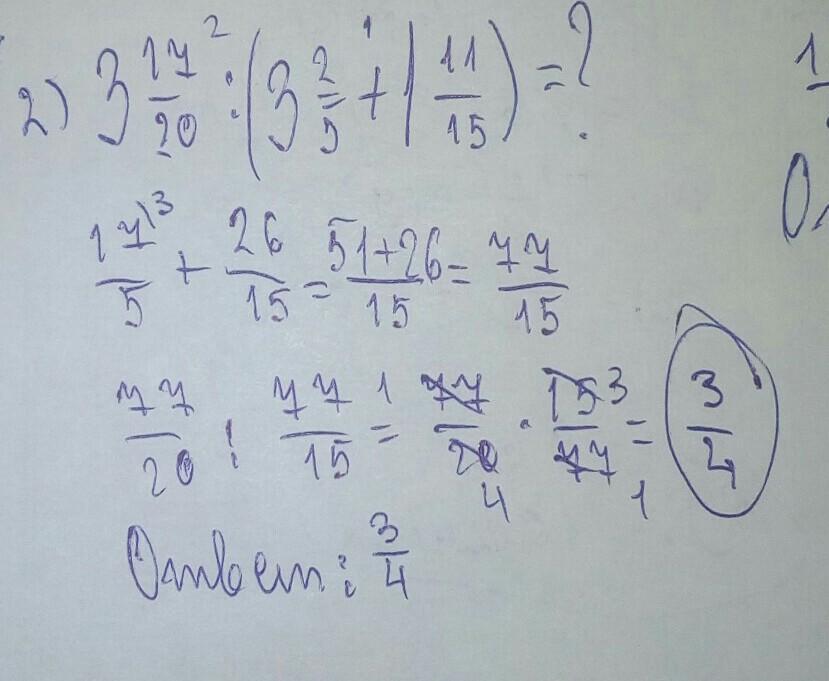 2) 3 17/20 2 : (3 2/5 1 + 1 11/15) = ?
17\3/5 + 26/15 = 51+26/15 = 77/15
77/20 : 77/15 = 1 77/20 4 · 15 3/77 1 = 3/4
Ответ: 3/4